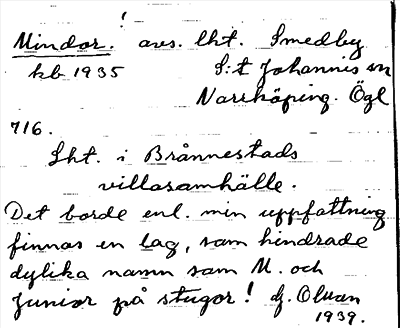 Mindor! avs. lht. Smedby
kb 1935 S:t Johannis sn
Norrköping. Ögl
716.
Lht. i Brånnestads
villasamhälle.
Det borde enl. min uppfattning
finnas en lag, som hindrade
dylika namn som M. och
Junior på stugor! 
1939.